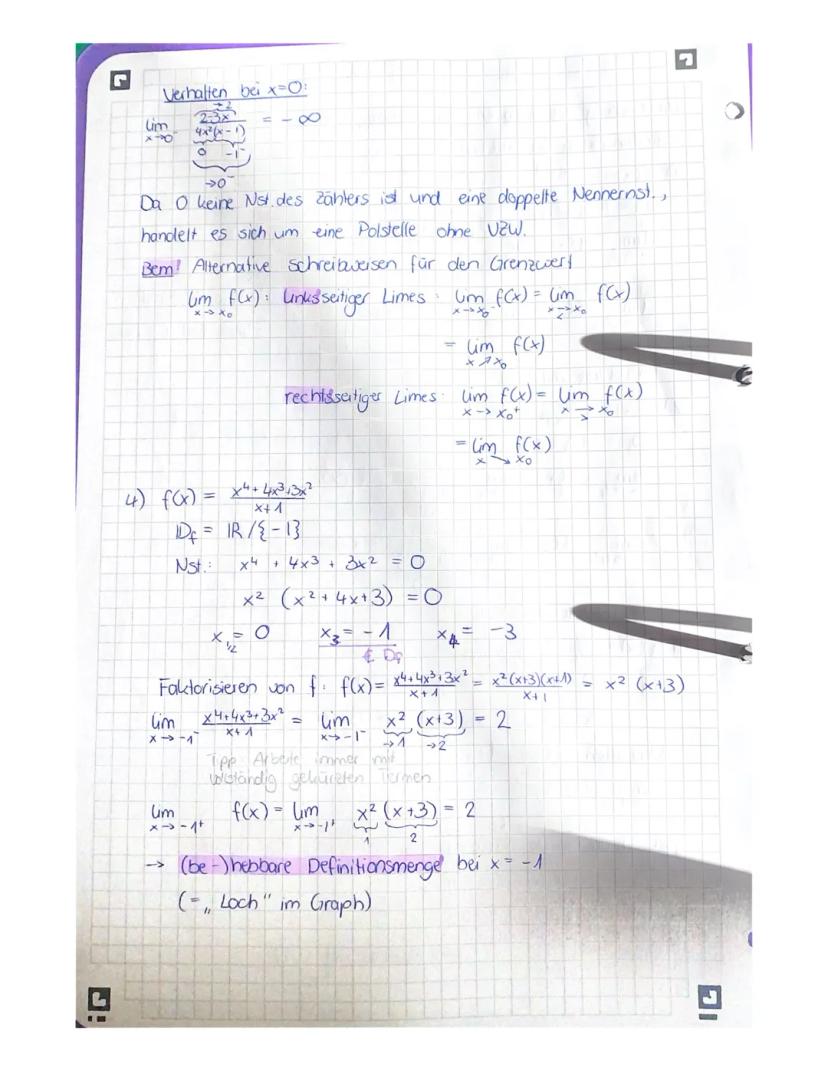 Verhalten bei x=0:
→2
lim x→0⁻ (2-3x)/(4x²(x-1)) = -∞
0 -1⁻
→0⁻
Da 0 keine Nst. des Zählers ist und eine doppelte Nennernst.,
handelt es sich um eine Polstelle ohne VZW.
Bem! Alternative Schreibweisen für den Grenzwert
lim x→x₀ f(x): linksseitiger Limes: lim x→x₀⁻ f(x) = lim x→x₀ < f(x)
= lim x↗x₀ f(x)
rechtsseitiger Limes: lim x→x₀⁺ f(x) = lim x→x₀ > f(x)
= lim x↘x₀ f(x)
4) f(x) = (x⁴+4x³+3x²)/(x+1)
ID_f = IR/{-1}
Nst.: x⁴ + 4x³ + 3x² = 0
x² (x²+4x+3) = 0
x₁/₂ = 0 x₃ = -1 x₄ = -3
∉ D_f
Faktorisieren von f: f(x) = (x⁴+4x³+3x²)/(x+1) = (x²(x+3)(x+1))/(x+1) = x² (x+3)
lim x→-1⁻ (x⁴+4x³+3x²)/(x+1) = lim x→-1⁻ x² (x+3) = 2
→1 →2
Tipp Arbeite immer mit
vollständig gekürzten Termen
lim x→-1⁺ f(x) = lim x→-1⁺ x² (x+3) = 2
1 2
→ (be-)hebbare Definitionsmenge bei x = -1
(= „Loch" im Graph)